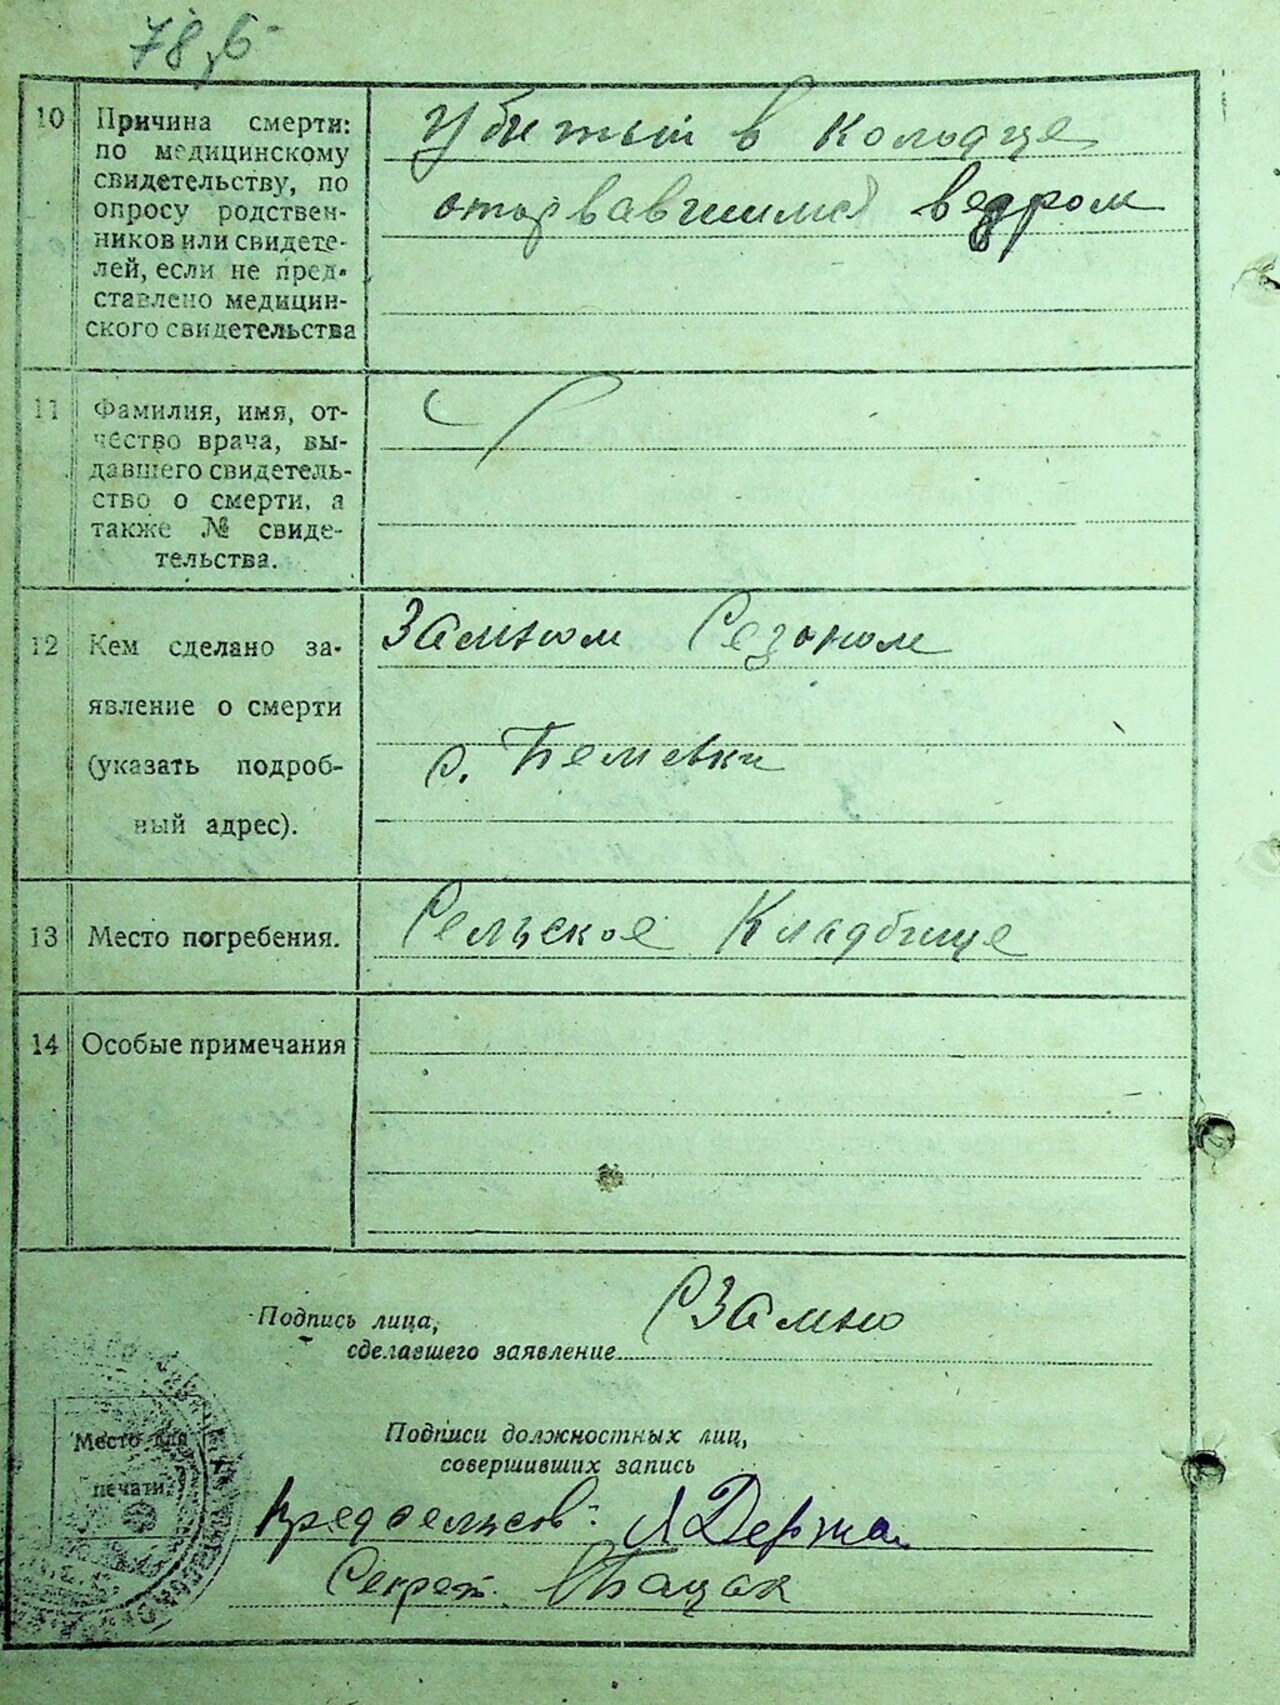 10 Причина смерти:
по медицинскому
свидетельству, по
опросу родствен-
ников или свидете-
лей, если не пред-
ставлено медицин-
ского свидетельства
Убитый в Колодце
оторвавшимся ведром
11 Фамилия, имя, от-
чество врача, вы-
давшего свидетель-
ство о смерти, а
также № свиде-
тельства.
12 Кем сделано за-
явление о смерти
(указать подроб-
ный адрес).
Замнюм Сезоном
с.
13 Место погребения.
Сельское Кладбище
14 Особые примечания
Подпись лица,
сделавшего заявление
СЗамню
Подписи должностных лиц,
совершивших запись
Место для
печати.
Предсельсов:
Секрет.